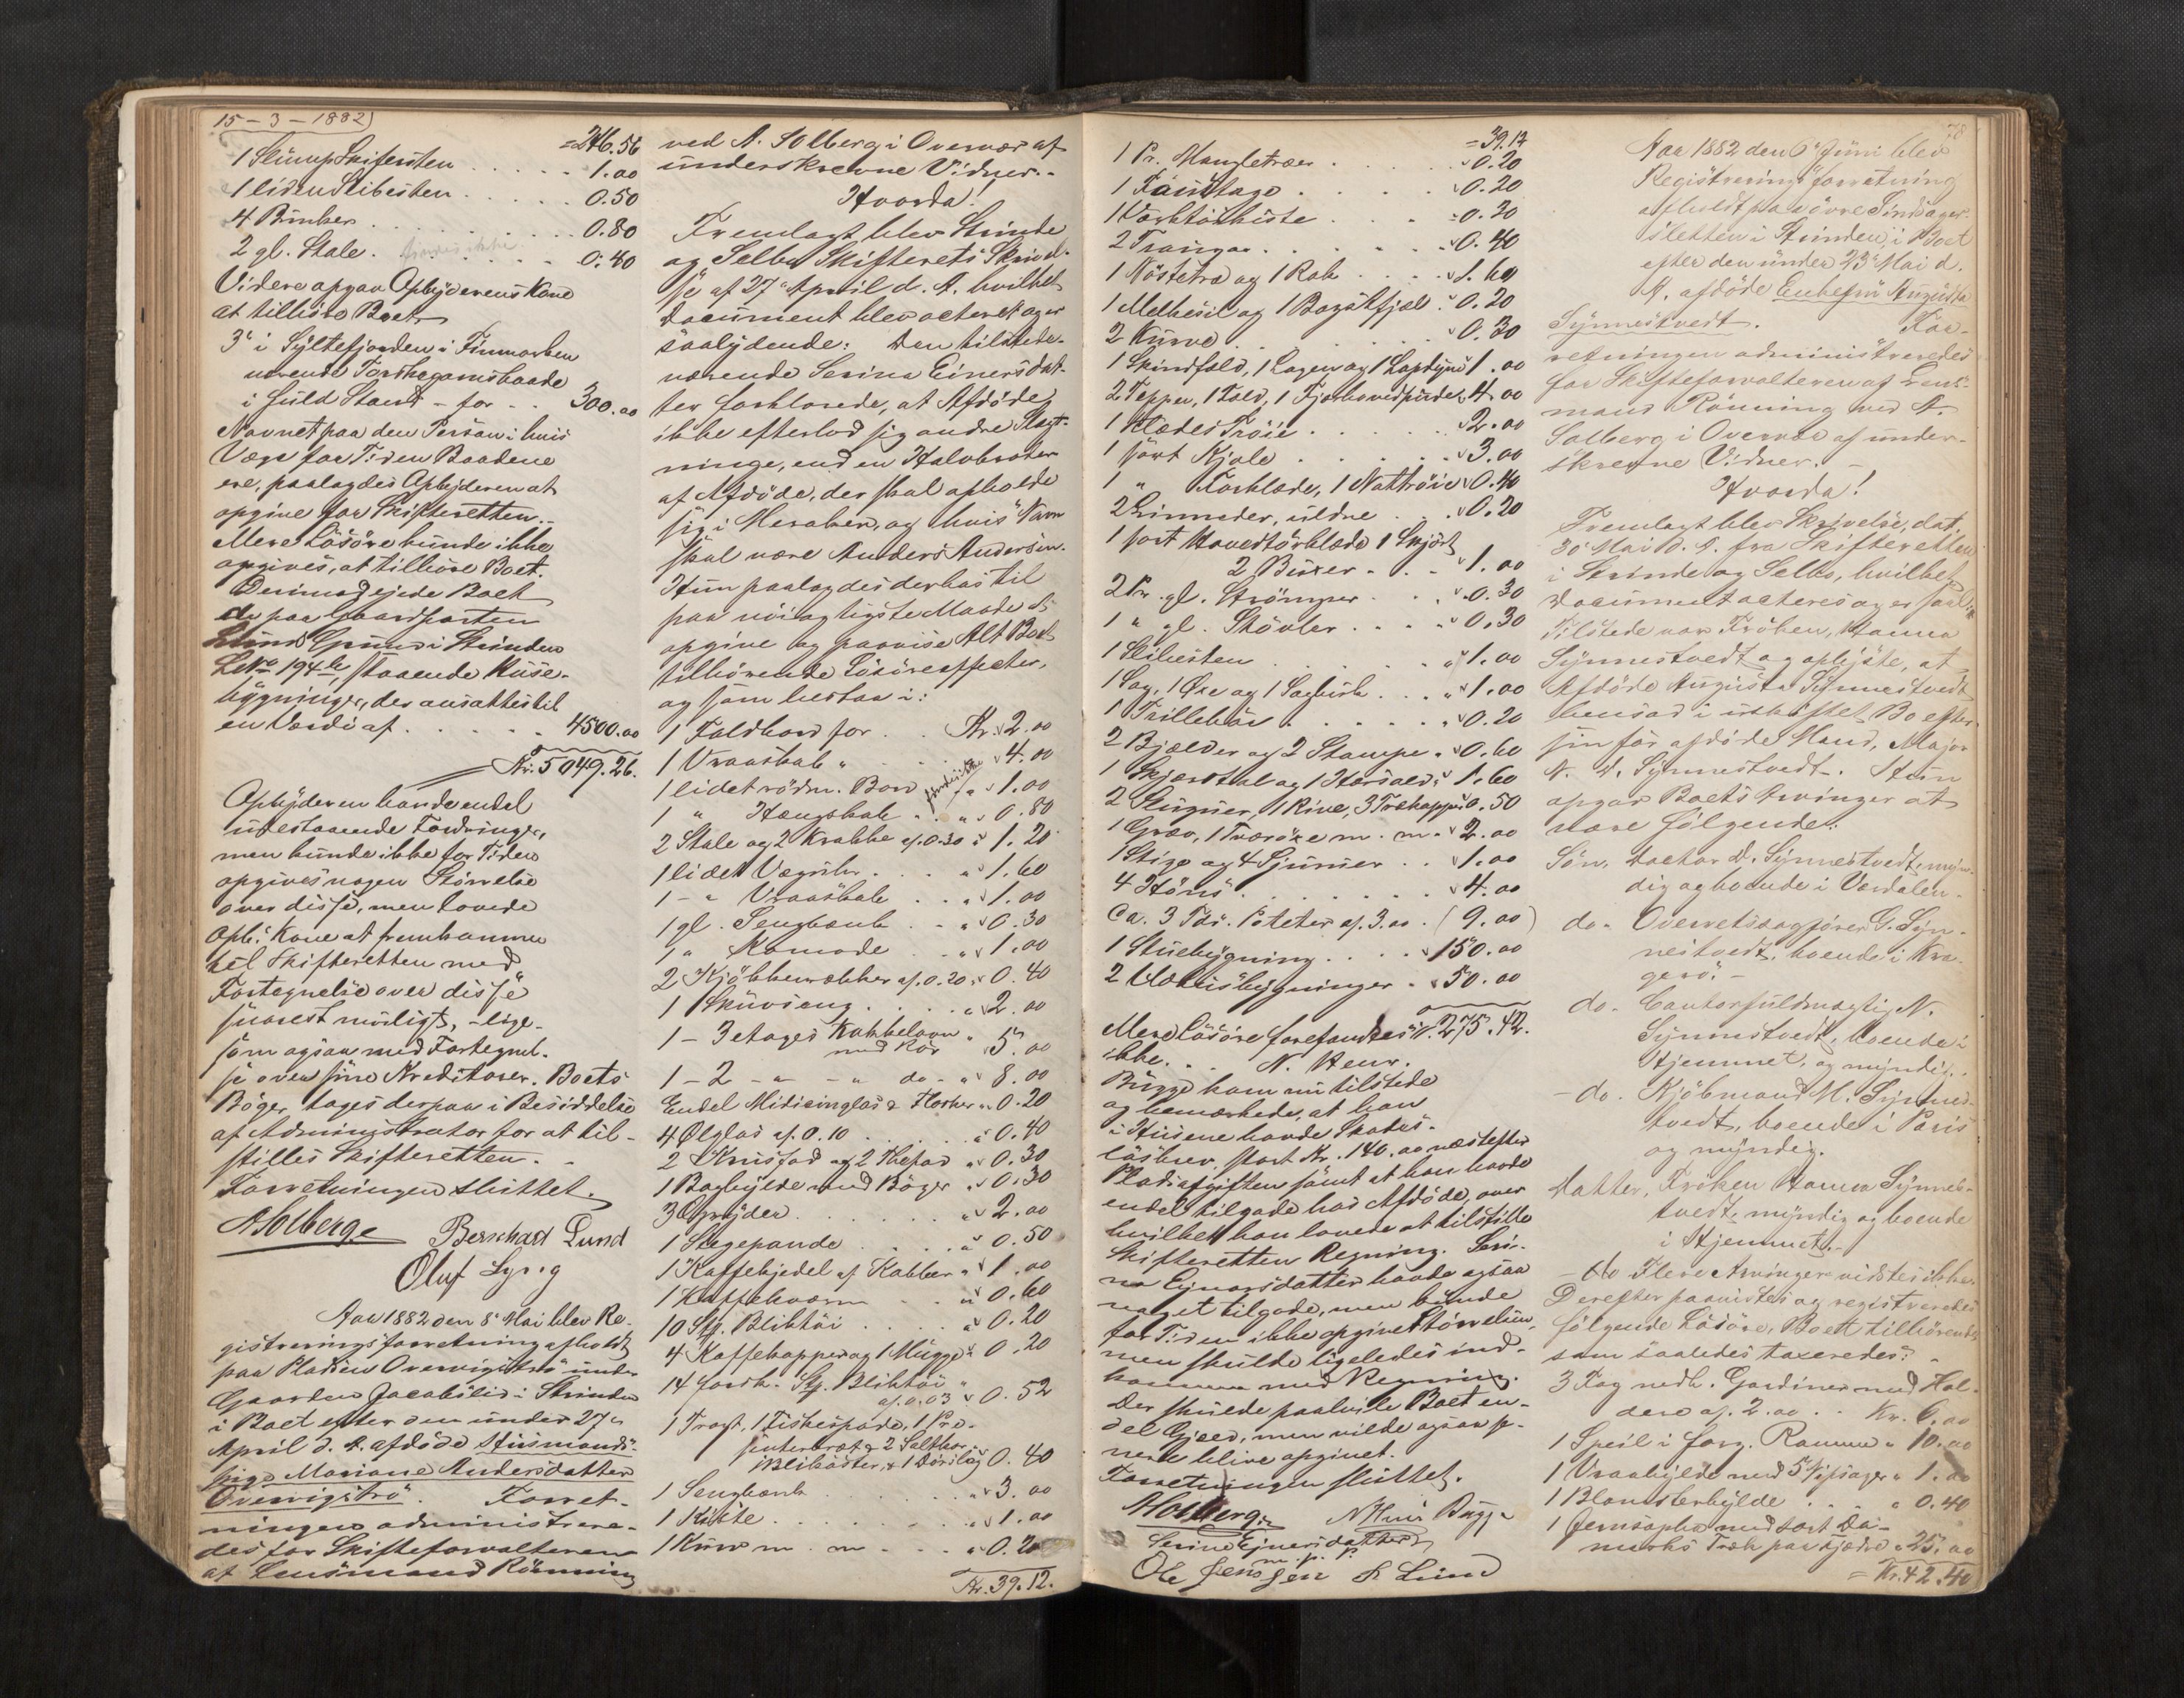 15-3-1882
=246.56
1 Slump Skifersten . . . . . 1.00
1 liden Slibesten . . . . . 0.50
4 Bimber . . . . . 0.80
2 gl. Stole . findes ikke . . . 0.40
Videre opgav Opbyderens Kone
at tilhöre Boet
3de i Syltefjorden i Finmarken
værende Torskegarnsbaade
i fuld Stand - for . . 300.00
Navnet paa den Person i hvis
Være for Tiden Baadene
ere, paalagdes Opbyderen at
opgive for Skifteretten.
Mere Lösöre kunde ikke
opgives, at tilhöre Boet.
Derimod ejede Boet
de paa Gaardparten
Grund i Strinden
LNo 194 staaende Huse-
bygninger, der ansattes til
en Værdi af . . . . . 4500.00
Kr. 5049.26.
Opbyderen havde endel
udestaaende Fordringer,
men kunde ikke for Tiden
opgives nogen Störrelse
over disse, men lovede
Opb. Kone at fremkomme
til Skifteretten med
Fortegnelse over disse
snarest muligt, - lige-
som ogsaa med Fortegnel-
se over sine Kreditorer. Boets
Böger tages derpaa i Besiddelse
af Administrator for at til-
stilles Skifteretten.
Forretningen sluttet.
A Solberg
Bernhard Lund
Oluf
Aar 1882 den 8de Mai blev Re-
gistreringsforretning afholdt
paa Pladsen Overvigströ under
Gaarden Jacobsli i Strinden
i Boet efter den under 27de
April d. A. afdöde Husmands-
pige Mariane Andersdatter
Overvigströ. Forret-
ningen administrere-
des for Skifteforvalteren
af Lensmand Rönning
ved A. Solberg i Overvær af
underskrevne Vidner.
Hvorda!
Fremlagt blev Strinde
og Selbu Skifterets Skrivel-
se af 27de April d. A. hvilket
Document blev acteret og er
saalydende: Den tilstede-
værende Serina Einersdat-
ter forklarede, at Afdöde
ikke efterlod sig andre Slægt-
ninge, end en Halvbroder
af Afdöde, der skal opholde
sig i Meraker, og hvis Navn
skal være Anders Andersen.
Hun paalagdes derhos til
paa nöiagtigste Maade at
opgive og paavise Alt Boet
tilhörende Lösöreeffecter,
og som bestaa i:
1 Foldbord for . . Kr. 2.00
1 Vraaskab " . . . 4.00
1 lidet rödm. Bord findes ikke " 1.00
1 " Hængskab . . " 0.80
2 Stole og 2 Krakke af 0.30 " 1.20
1 lidet Væguhr . . . " 1.60
1 - " Vraaskab . . " 1.00
1 gl. Sengbænk . . " 0.30
1 " Komode . . " 1.00
2 Kjökkenrækker af 0.20 " 0.40
1 Skuvseng . . . " 2.00
1 - 3 etages Kakkelovn
med Rör " 5.00
1 - 2 - " - " do - " 8.00
Endel Midicinglas & Flasker " 0.20
4 Ölglas af 0.10 . . . " 0.40
2 Krusfad og 2 Thefad " 0.30
1 Boghylde med Böger " 0.30
3 Gryder . . . . . " 2.00
1 Stegepande . . . . " 0.50
1 Kaffekjedel af Kobber " 1.00
1 Kaffekværn . . " 0.60
10 Stp. Bliktöi . . . . " 0.20
4 Kaffekopper og 1 Mugge " 0.20
14 forsk. Stp. Bliktöi "
af 0.03 " 0.52
1 Tragt, 1 Fiskespade, 1 Pre-
senterbræt & 2 Saltkar
Blikbötter, & 1 Dörslag 0.40
1 Sengbænk . . . . . " 3.00
1 Kiste . . . . . " 1.00
1 Kurv m. m. . . " 0.20
Kr. 39.12.
=39.12
1 Pr. Mangletræer . . . . " 0.20
1 Faustage . . . . . " 0.20
1 Værktöikiste . . . " 0.30
2 Traugar . . . . . " 0.40
1 Nöstetra og 1 Rok . . . " 1.60
1 Melkesil og 1 Bagstfjæl " 0.20
2 Kurve . . . . . " 0.30
1 Skindfeld, 1 Lagen og 1 Lapdyne 1.00
2 Tepper, 1 Fæld, 1 Fjærhovedpude 4.00
1 Klædes Tröie . . . . . " 2.00
1 sort Kjole . . . . . " 3.00
1 " Forklæde, 1 Nattröie " 0.40
2 Linneder, uldne . . . " 0.20
1 sort Hovedtörklæde 1 Skjört
2 Buxer . . . " 1.00
2 Pr. gl. Strömper . . . " 0.30
1 " gl. Stövler . . . . " 0.30
1 Slibesten . . . . . " 1.00
1 Sag, 1 Öxe og 1 Sagkrak . . . " 1.00
1 Trillebör . . . . . " 0.20
2 Bjælder og 2 Stampe . " 0.60
1 Skjæretal og 1 Horsæld " 1.60
2 Greiper, 1 Rive, 3 Trækopper 0.50
1 Grev, 1 Tværöxe m. m. " 2.00
1 Stige og 4 Sjumer . . " 1.00
4 Höns . . . . . " 4.00
Ca. 3 Tdr. Poteter af 3.00 . (9.00)
1 Stuebygning . . . . " 150.00
2 Udhusbygninger . " 50.00
Mere Lösöre forefandtes Kr. 275.42.
ikke. . . N. Henr.
Bugge kom nu tilstede
og bemærkede, at han
i Husene havde Skades-
löshrev. stort Kr. 140.00 næstefter
Pladsafgiften samt at han havde
endel tilgode hos Afdöde, over
hvilket han lovede at tilstille
Skifteretten Regning. Seri-
na Ejnarsdatter havde ogsaa
noget tilgode, men kunde
for Tiden ikke opgive Störrelsen,
men skulde ligeledes ind-
komme med Regning.
Der skulde paahvile Boet en-
del Gjæld, men vilde ogsaa se-
nere blive opgivet.
Forretningen sluttet.
ASolberg
N Henr Bugge
Serine Ejnersdatter
m. p. P.
Ole Jenssen
Lund
78
Aar 1882 den 6te Juni blev
Registreringsforretning
afholdt paa övre Sindsager-
sletten i Strinden, i Boet
efter den under 23de Mai d.
A. afdöde Enkefru Augusta
Synnestvedt. For-
retningen administreredes
for Skifteforvalteren af Lens-
mand Rönning ved A.
Solberg i Overvær af under-
skrevne Vidner. -
Hvorda!
Fremlagt blev Skrivelse, dat.
30 Mai d. A. fra Skifteretten
i Strinde og Selbu, hvilket
Document acteres og er saal.
Tilstede var Fröken, Hanna
Synnestvedt og oplyste, at
Afdöde Augusta Synnestvedt
hensad i uskiftet Bo efter
sin för afdöde Mand, Major
N. D. Synnestvedt. Hun
opgav Boets Arvinger at
være fölgende:
Sön, Doctor D. Synnestvedt, myn-
dig og boende i Verdalen.
do. Overretssagförer G. Syn-
nestvedt, boende i Kra-
gerö. -
do. Contorfuldmægtig N.
Synnestvedt, boende i
Hjemmet, og myndig.
- do. Kjöbmand M. Synnes-
tvedt, boende i Paris
og myndig.
Datter, Fröken Hanna Synnes-
tvedt, myndig og boende
i Hjemmet.
- do Flere Arvinger vidstes ikke.
Derefter paavistes og registreredes
fölgende Lösöre, Boett tilhörende
som saaledes taxeredes:
3 Fag nedh. Gardiner med Hol-
dere af 2.00 . . Kr. 6.00
1 Speil i forg. Ramme " 10.00
1 Vraahylde med 5 Nipsager " 1.00
1 Blomsterhylde . . . " 0.40
1 Jernsopha med sort Da-
marks Træk paa Fjædre " 25.00
= Kr. 42.40